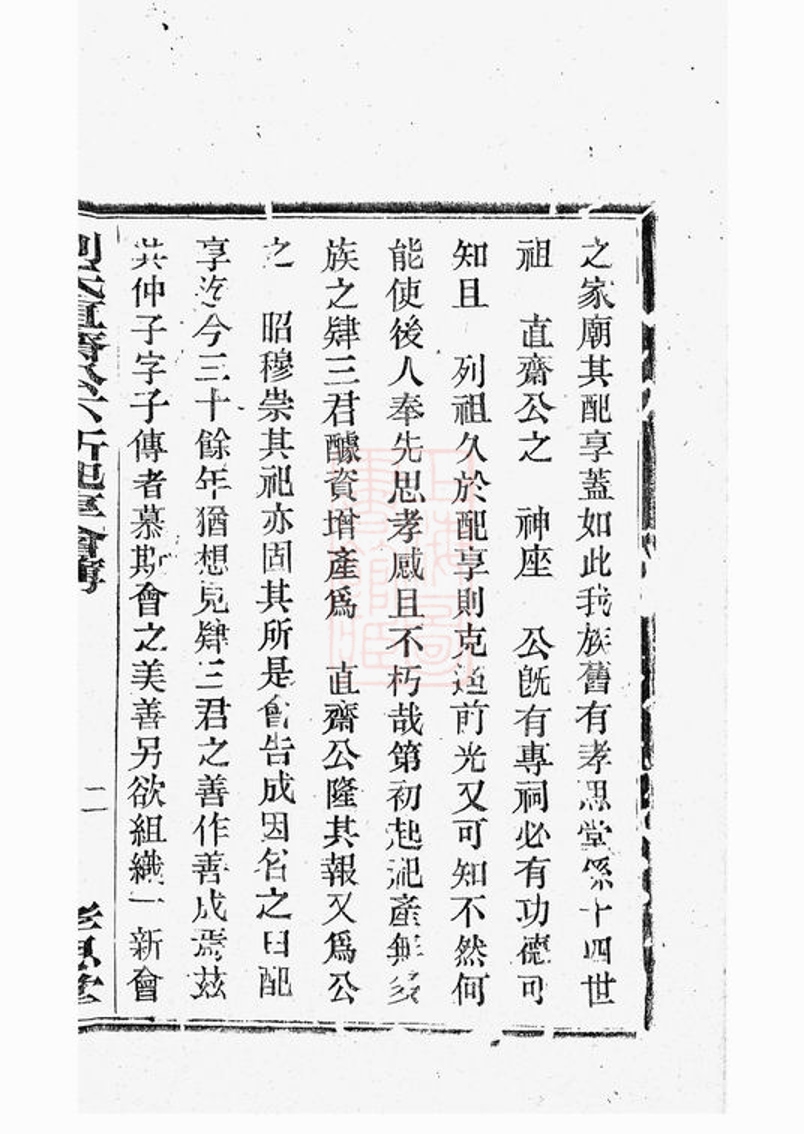 之家廟其配享蓋如此我族舊有孝思堂係十四世
祖　直齋公之　神座　公旣有專祠必有功德可
知且　列祖久於配享則克遹前光又可知不然何
能使後人奉先思孝感且不朽哉第初起祀產無多
族之肄三君醵資增產爲　直齋公隆其報又爲公
之　昭穆崇其祀亦固其所是會告成因名之曰配
享迄今三十餘年猶想見肄三君之善作善成焉茲
洪仲子字子傳者慕斯會之美善另欲組織一新會
劉氏直齋公六祈祀享會簿
二
孝思堂